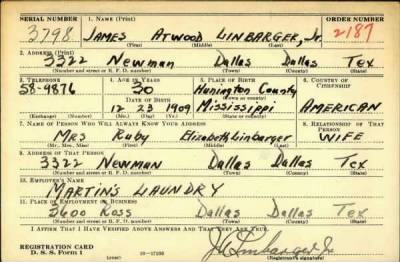 SERIAL NUMBER 1. NAME (Print) ORDER NUMBER
3798 JAMES ATWOOD LINBARGER, Jr. 2187
(First) (Middle) (Last)
2. ADDRESS (Print)
3322 Newman Dallas Dallas Tex
(Number and street or R. F. D. number) (Town) (County) (State)
3. TELEPHONE 4. AGE IN YEARS 5. PLACE OF BIRTH 6. COUNTRY OF CITIZENSHIP
58-9876 30 Hunington County
DATE OF BIRTH (Town or county)
12 23 1909 Mississippi AMERICAN
(Exchange) (Number) (Mo.) (Day) (Yr.) (State or country)
7. NAME OF PERSON WHO WILL ALWAYS KNOW YOUR ADDRESS 8. RELATIONSHIP OF THAT PERSON
Mrs Ruby Elizabeth Linbarger WIFE
(Mr., Mrs., Miss) (First) (Middle) (Last)
9. ADDRESS OF THAT PERSON
3322 NEWMAN Dallas Dallas Tex
(Number and street or R. F. D. number) (Town) (County) (State)
10. EMPLOYER'S NAME
MARTIN'S LAUNDRY
11. PLACE OF EMPLOYMENT OR BUSINESS
2600 Ross Dallas Dallas Tex
(Number and street or R. F. D. number) (Town) (County) (State)
I AFFIRM THAT I HAVE VERIFIED ABOVE ANSWERS AND THAT THEY ARE TRUE.
REGISTRATION CARD
D. S. S. Form 1 (over) Linbarger Jr
(Registrant's signature)